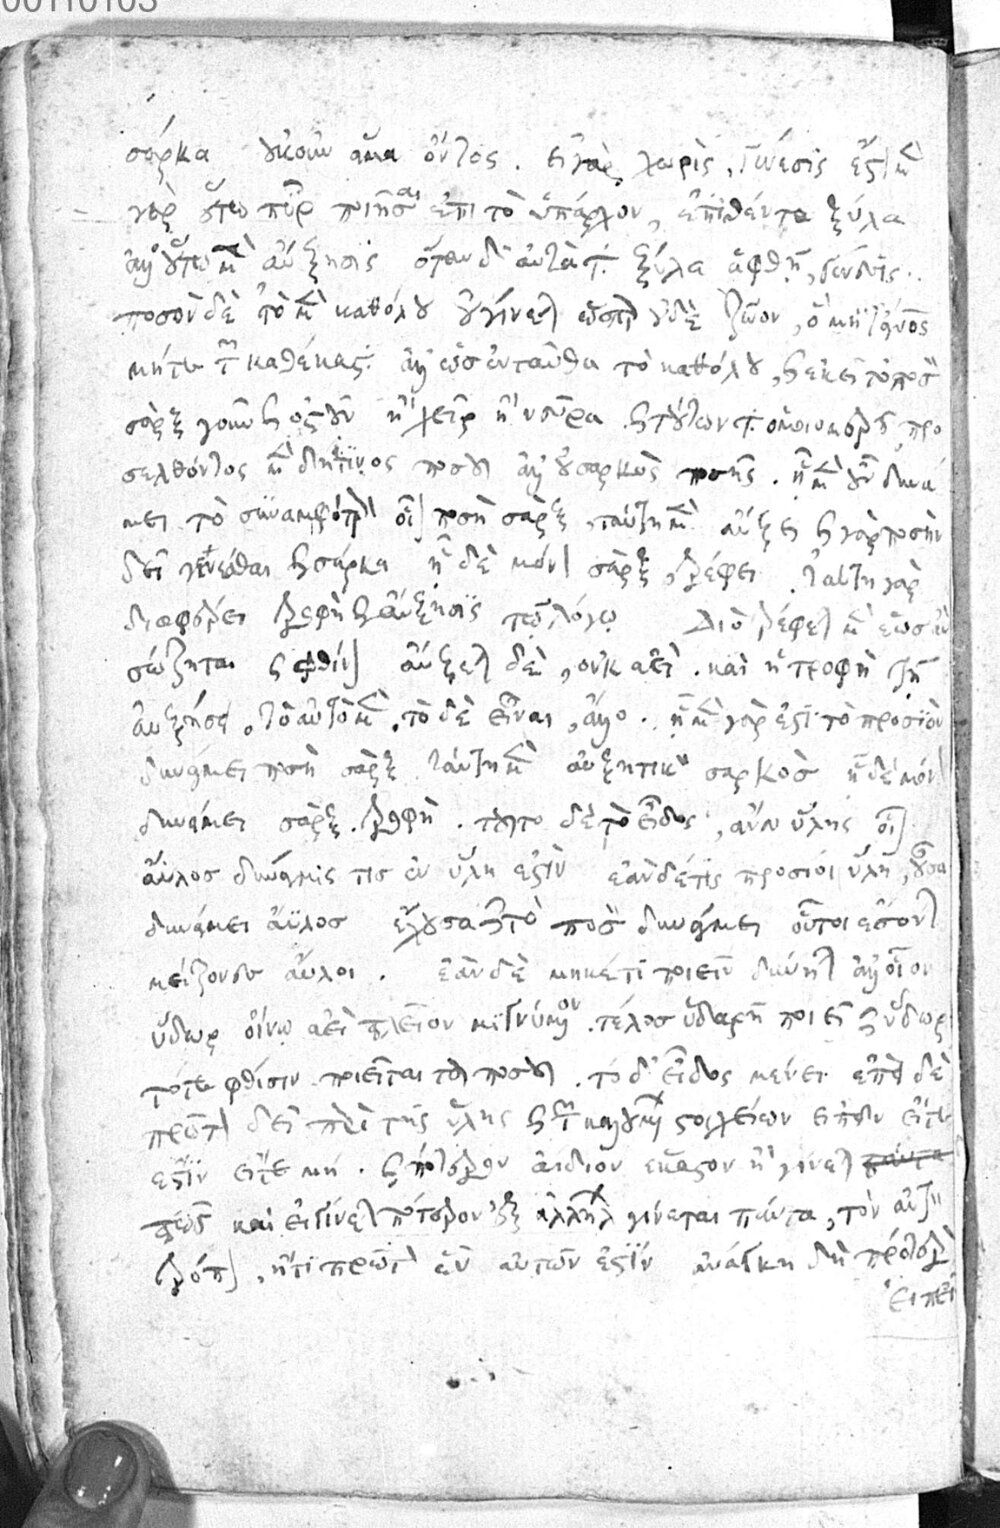 00110103
σάρκα οὐκοῦν ἅμα ὄντος. εἰ γὰρ χωρὶς, γένεσις ἔστι μὲν
γὰρ οὕτω πῦρ ποιῆσαι ἐπὶ τὸ ὑπάρχον, ἐπιθέντα ξύλα
ἀλλ' οὕτω μὲν αὔξησις ὅταν δὲ αὐτὰ τὰ ξύλα ἁφθῇ, γένεσις.
ποσὸν δὲ τὸ μὲν καθόλου οὐ γίνεται ὥσπερ οὐδὲ ζῶον, ὃ μήτ' ἄνθρωπος
μήτε τῶν καθέκαστα. ἀλλ' ὡς ἐνταῦθα τὸ καθόλου, κἀκεῖ τὸ ποσὸν
σὰρξ γοῦν καὶ ὀστοῦν ἢ χεὶρ ἢ νεῦρα καὶ τούτων τὰ ὁμοιομερῆ, προ
σελθόντος μὲν δή τινος ποσοῦ ἀλλ' οὐ σαρκὸς ποσῆς. ᾗ μὲν οὖν δυνά
μει τὸ συναμφότερον οἷον ποσὴ σὰρξ, ταύτῃ μὲν αὔξει καὶ γὰρ ποσὴν
δεῖ γενέσθαι καὶ σάρκα ᾗ δὲ μόνον σὰρξ, τρέφει. ταύτῃ γὰρ
διαφέρει τροφὴ καὶ αὔξησις τῷ λόγῳ διὸ τρέφεται μὲν ἕως ἂν
σώζηται καὶ φθίνον αὔξεται δὲ, οὐκ ἀεὶ. καὶ ἡ τροφὴ τῇ
αὐξήσει, τὸ αὐτὸ μὲν, τὸ δὲ εἶναι, ἄλλο. ᾗ μὲν γάρ ἐστι τὸ προσιὸν
δυνάμει ποσὴ σὰρξ ταύτῃ μὲν αὐξητικὸν σαρκὸς ᾗ δὲ μόνον
δυνάμει σὰρξ. τροφὴ. τοῦτο δὲ τὸ εἶδος, ἄνευ ὕλης οἷον
ἄϋλος δύναμίς τις ἐν ὕλῃ ἐστὶν ἐὰν δέ τις προσίοι ὕλη, οὖσα
δυνάμει ἄϋλος ἔχουσα καὶ τὸ ποσὸν δυνάμει οὗτοι ἔσονται
μείζονες ἄϋλοι. ἐὰν δὲ μηκέτι ποιεῖν δύνηται ἀλλ' οἷον
ὕδωρ οἴνῳ ἀεὶ πλεῖον μιγνύμενον. τέλος ὑδαρῆ ποιεῖ καὶ ὕδωρ
τότε φθίσιν ποιεῖται τοῦ ποσοῦ. τὸ δ' εἶδος μένει ἐπεὶ δὲ
πρῶτον δεῖ περὶ τῆς ὕλης καὶ τῶν καλουμένων στοιχείων εἰπεῖν εἴτε
ἐστὶν εἴτε μή. καὶ πότερον ἀΐδιον ἕκαστον ἢ γίνεται πάντα
πως καὶ εἰ γίνεται πότερον ἐξ ἀλλήλων γίνεται πάντα, τὸν αὐτὸν
τρόπον, ἤ τι πρῶτον ἓν αὐτῶν ἐστιν ἀνάγκη δὴ πρότερον
εἰπεῖ